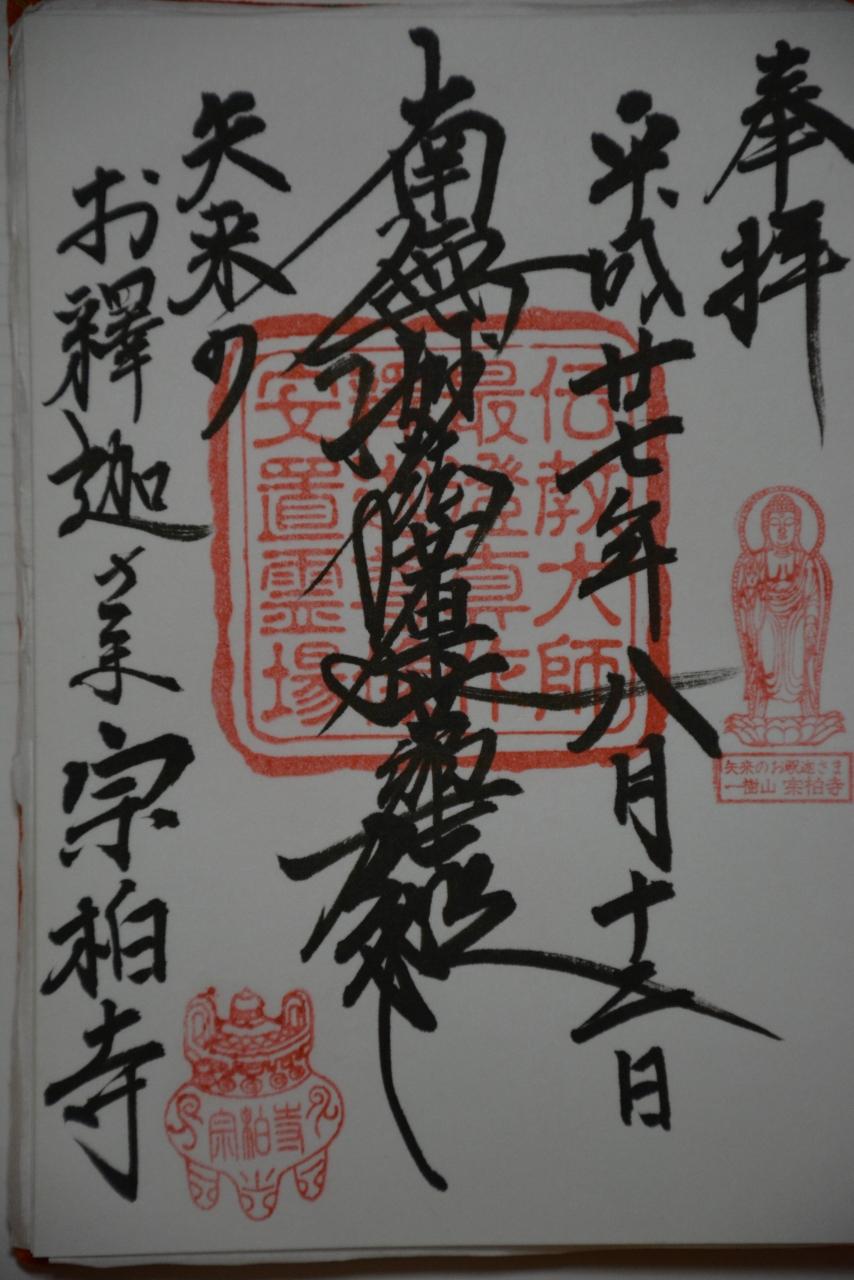 奉拝
平成廿七年八月十五日
南無妙法蓮華経
矢来の
お釋迦さま宗柏寺
伝教大師
最澄真作
安置霊場
矢来のお釈迦さま
一樹山 宗柏寺
宗柏寺